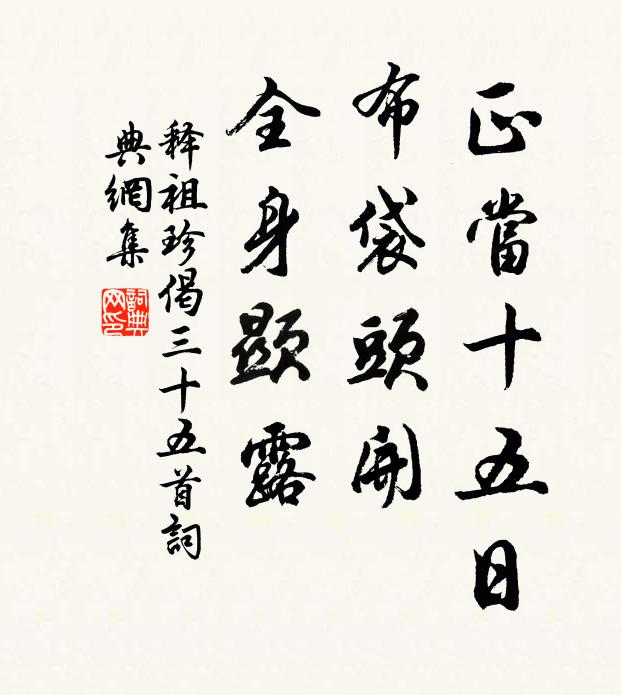 正當十五日
布袋頭開
全身顯露
释祖珍偈三十五首詞
典網集
詞典網印